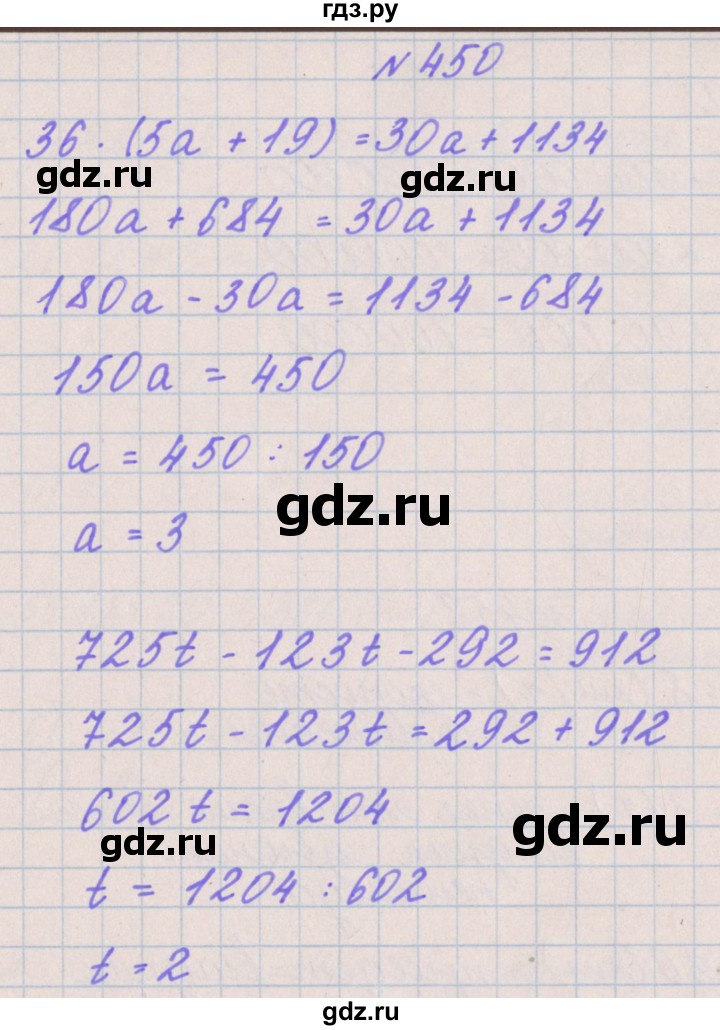 гдз.ру
N 450
36 · (5a + 19) = 30a + 1134
gdz.ru
gdz.ru
180a + 684 = 30a + 1134
180a - 30a = 1134 - 684
150a = 450
a = 450 : 150
gdz.ru
a = 3
725t - 123t - 292 = 912
725t - 123t = 292 + 912
602t = 1204
gdz.ru
gdz.ru
t = 1204 : 602
t = 2
gdz.ru